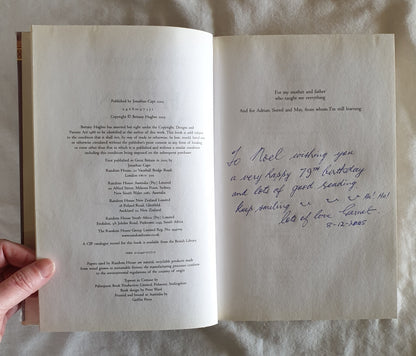 Published by Jonathan Cape 2005
2 4 6 8 10 9 7 5 3 1
Copyright © Bettany Hughes 2005
Bettany Hughes has asserted her right under the Copyright, Designs and
Patents Act 1988 to be identified as the author of this work
This book is sold subject
to the condition that it shall not, by way of trade or otherwise, be lent, resold, hired out,
or otherwise circulated without the publisher's prior consent in any form of binding
or cover other than that in which it is published and without a similar condition
including this condition being imposed on the subsequent purchaser
First published in Great Britain in 2005 by
Jonathan Cape
Random House, 20 Vauxhall Bridge Road,
London
Random House Australia (Pty) Limited
20 Alfred Street, Milsons Point, Sydney,
New South Wales 2061, Australia
Random House New Zealand Limited
18 Poland Road, Glenfield,
Auckland 10, New Zealand
Random House South Africa (Pty) Limited
South Africa
The Random House Group Limited Reg. No. 954009
www.randomhouse.co.uk
A CIP catalogue record for this book is available from the British Library
Papers used by Random House are natural, recyclable products made
from wood grown in sustainable forests; the manufacturing processes conform
to the environmental regulations of the country of origin
Typeset in Centaur by
Palimpsest Book Production Limited, Polmont, Stirlingshire
Book design by Peter Ward
Printed and bound in Australia by
Griffin Press
For my mother and father
who taught me everything
And for Adrian, Sorrel and May, from whom I'm still learning
To Noel wishing you
a very happy 79th birthday
and lots of good reading.
Keep smiling Ha! Ha!
lots of love
8-12-2005